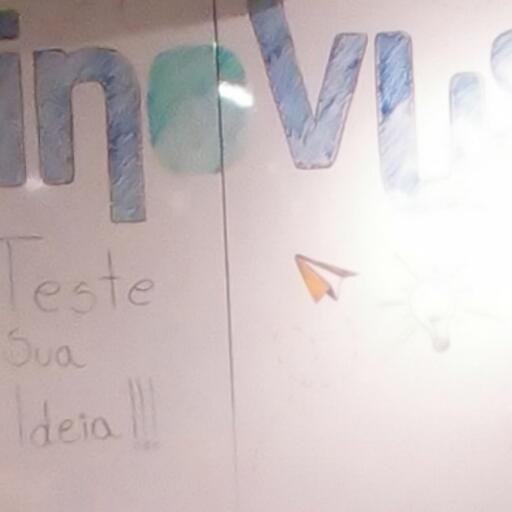 inovus
Teste
Sua
Ideia!!!